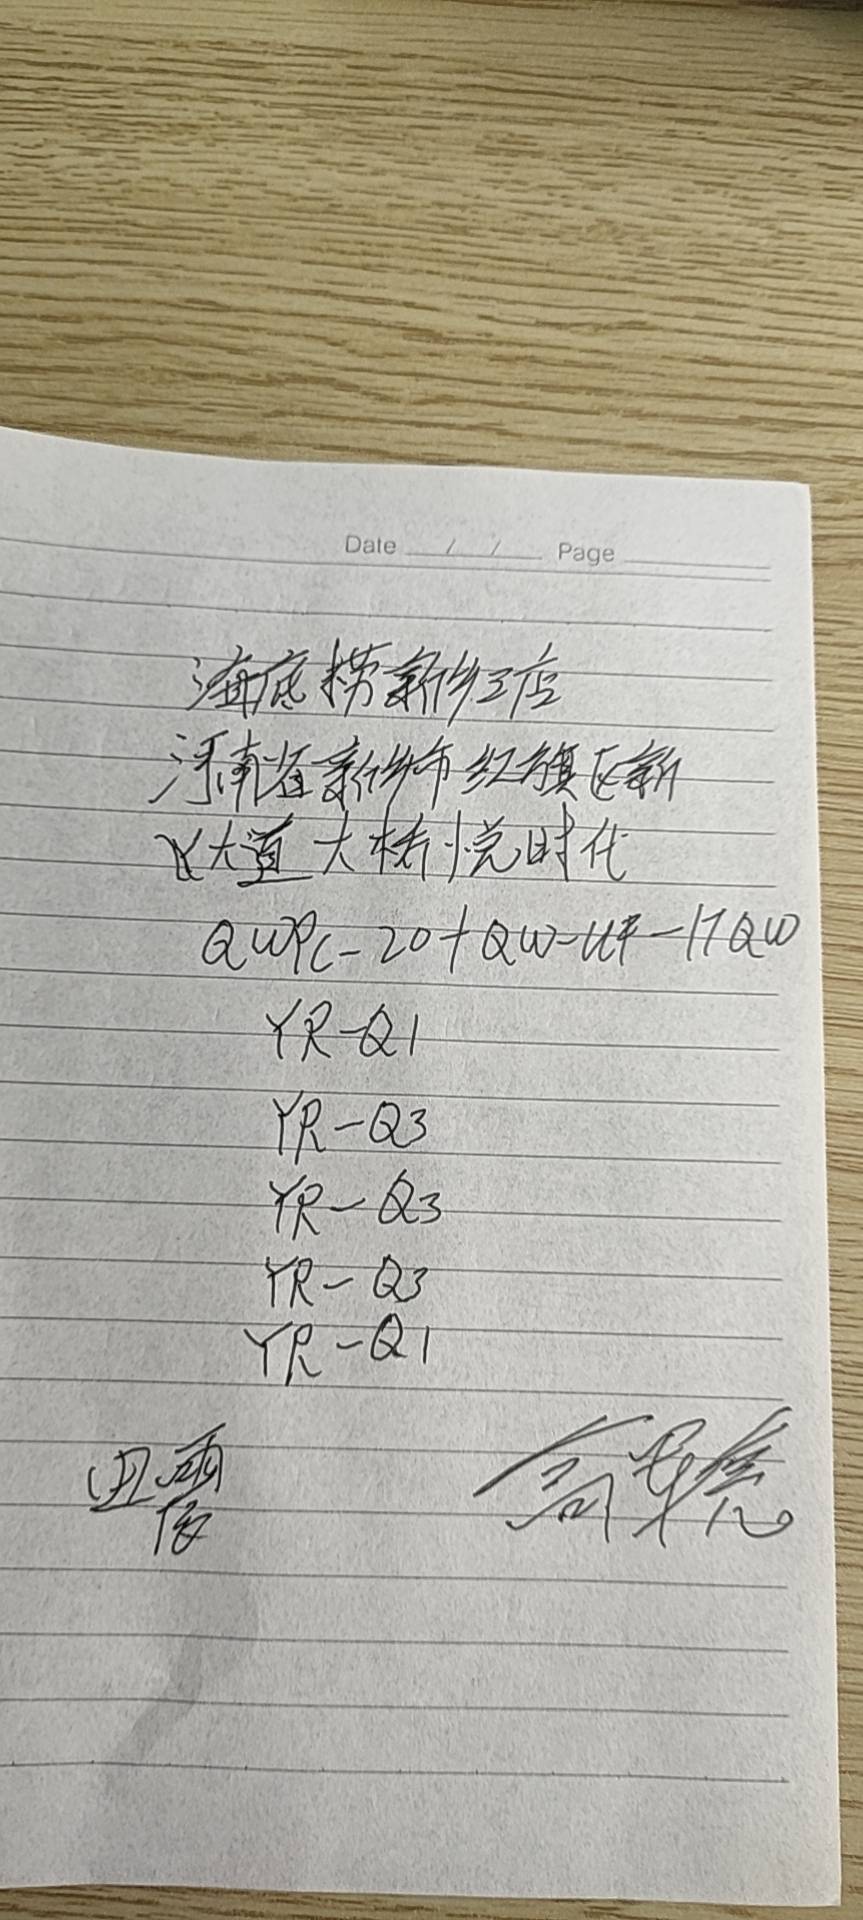 Date / / Page
海底捞新乡三店
河南省新乡市红旗区新
大道大桥悦时代
QWPC-20+QW-UF-1TQW
YR-Q1
YR-Q3
YR-Q3
YR-Q3
YR-Q1